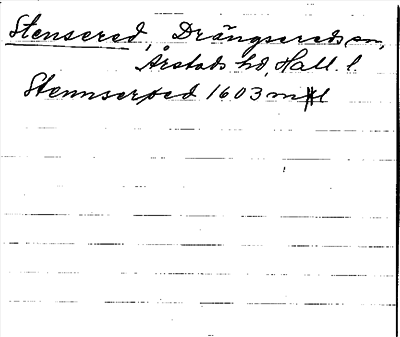 Stensered, Drängsereds sn,
Årstads hd, Hall. l.
Stennserved 1603